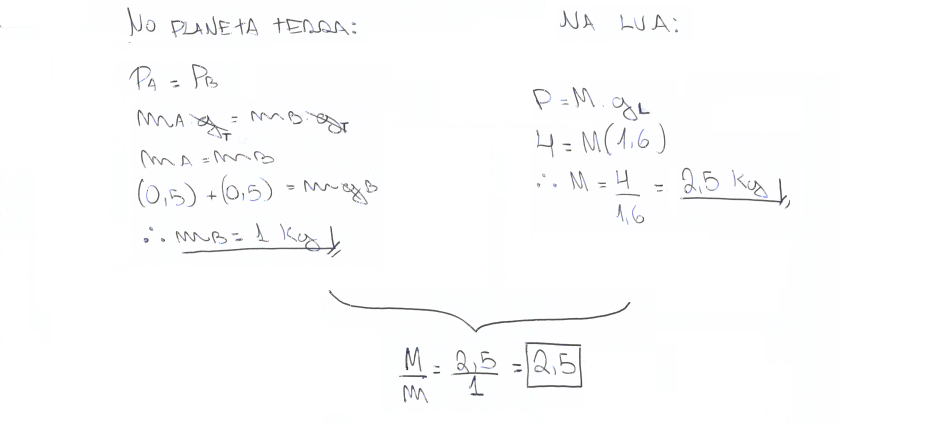 NO PLANETA TERRA:
PA = PB
mA.gT = mB.gT
mA = mB
(0,5) + (0,5) = mgB
∴ mB = 1 Kg
NA LUA:
P = M.gL
4 = M(1,6)
∴ M = 4/1,6 = 2,5 Kg
M/m = 2,5/1 = 2,5